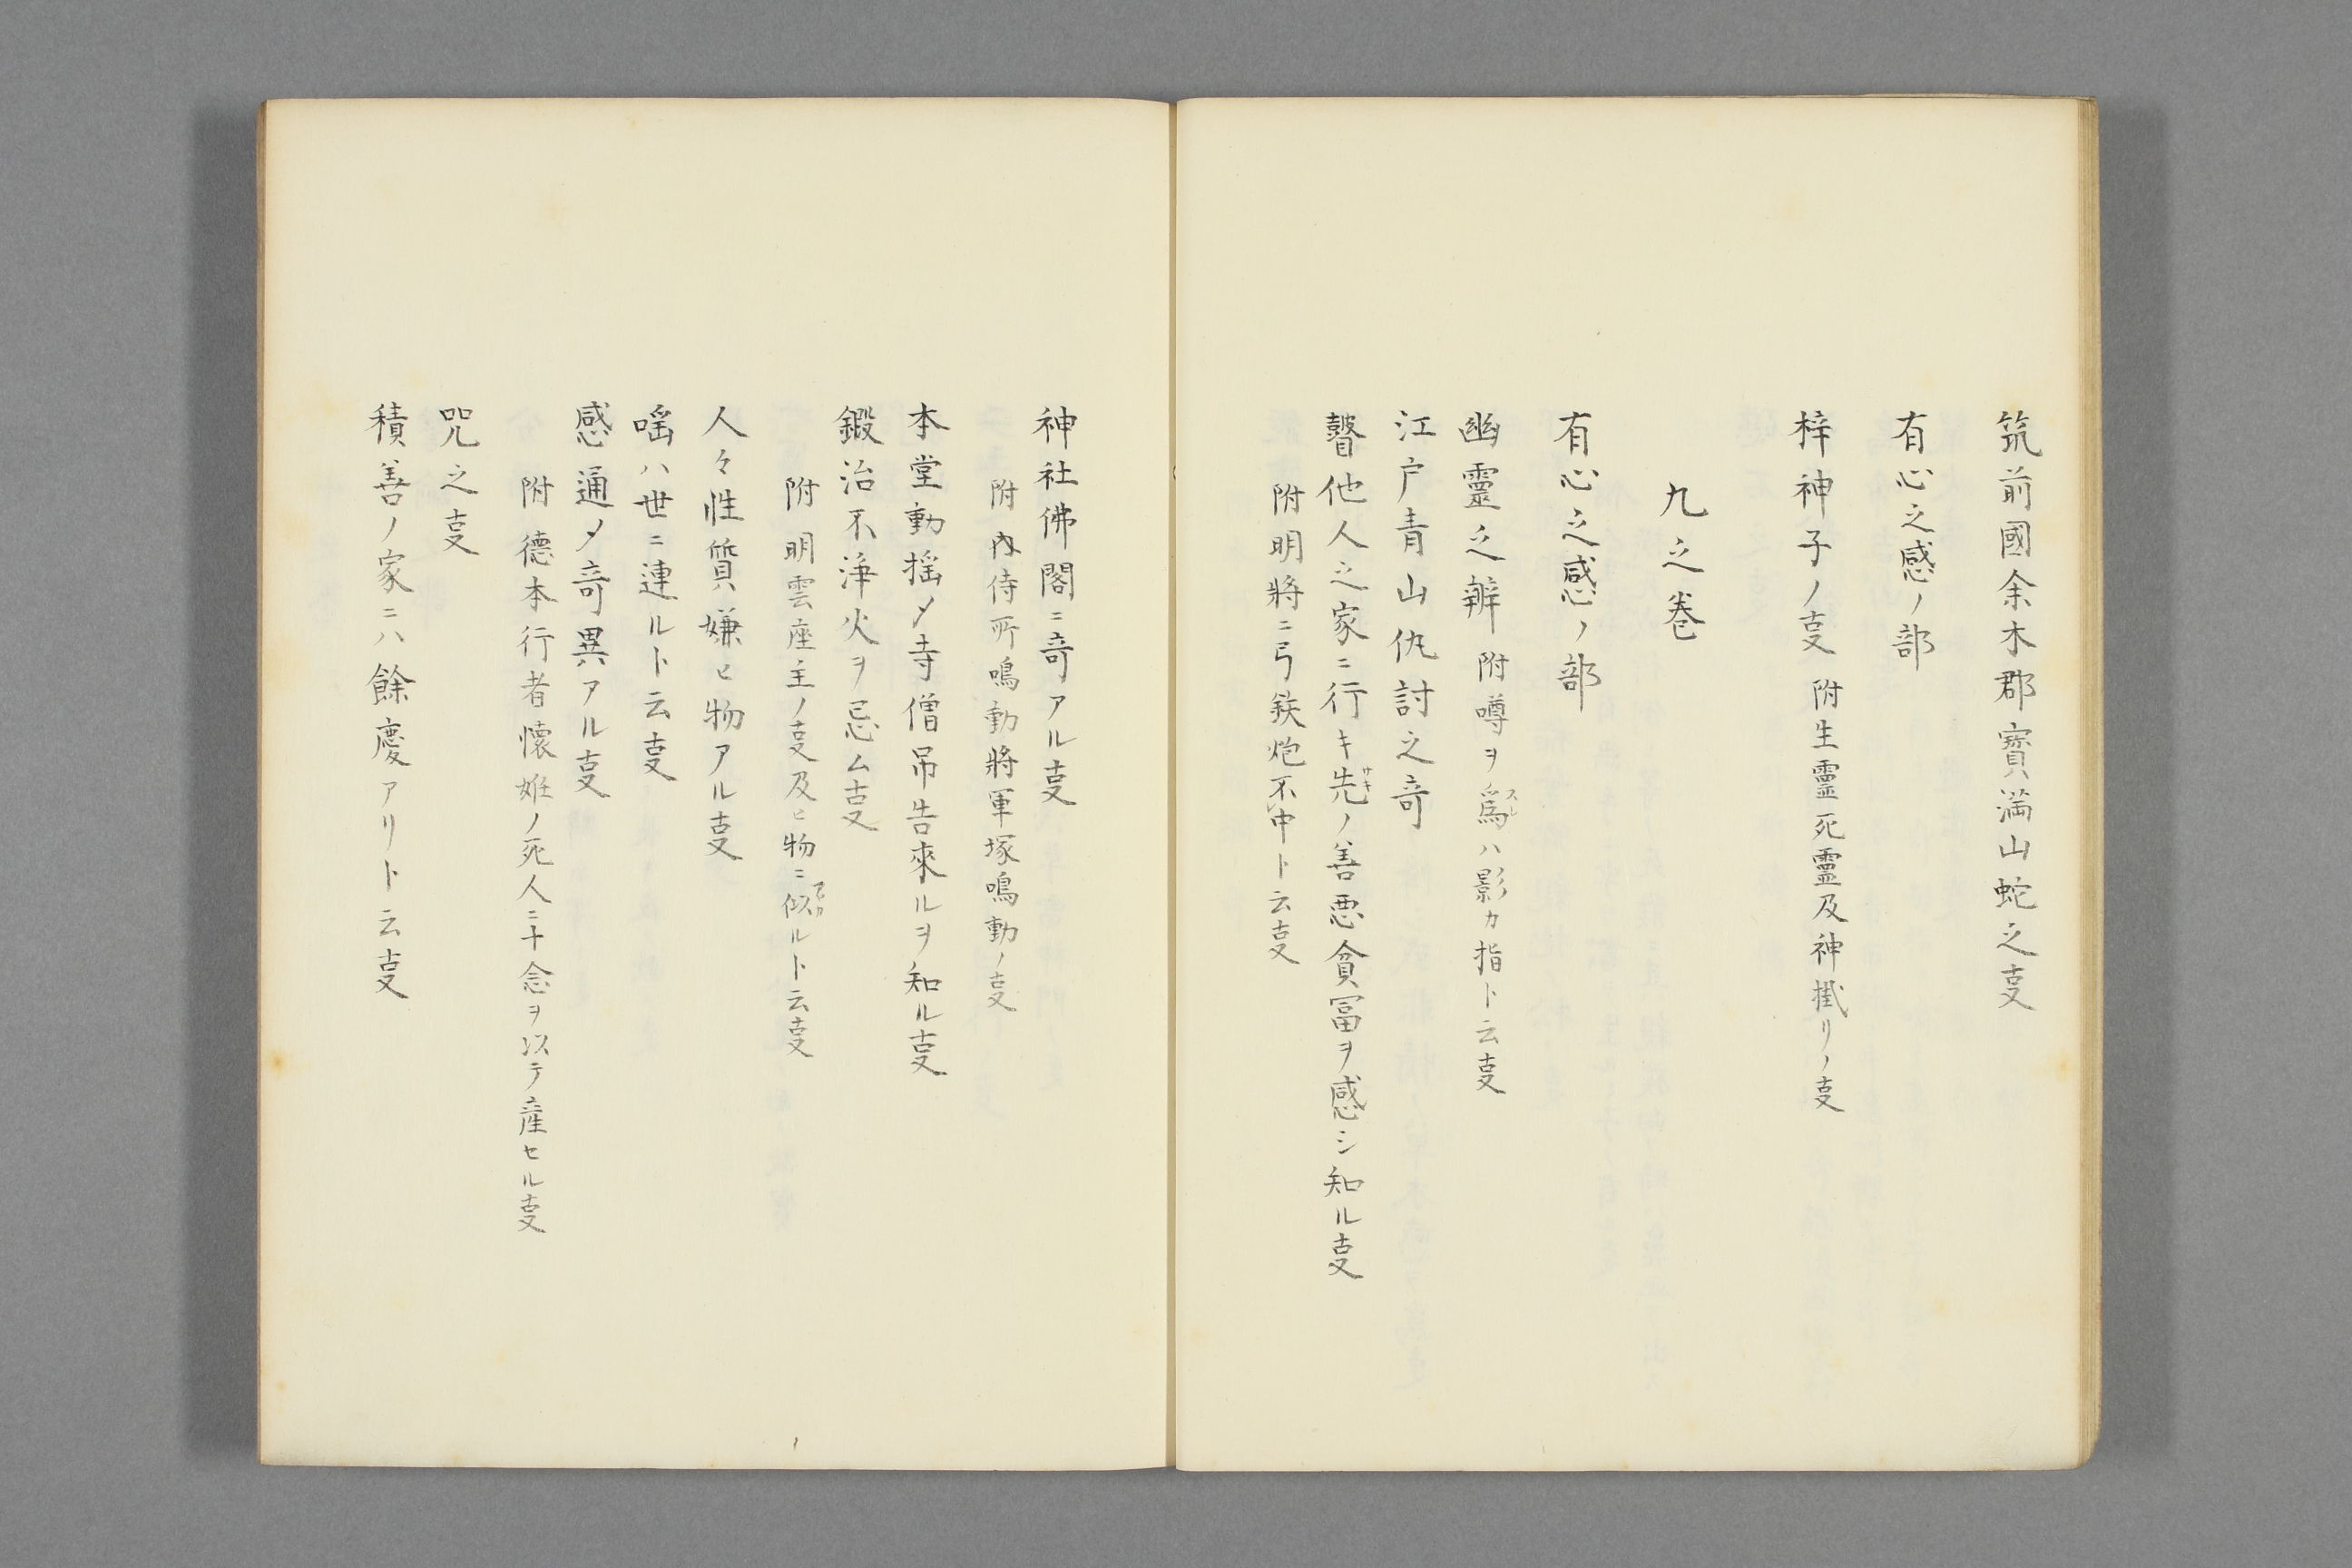 筑前國余木郡寳満山蛇之㕝
有心之感ノ部
梓神子ノ㕝 附生靈死靈及神掛リノ㕝
九之巻
有心之感ノ部
幽靈之辨 附噂ヲ爲スレハ影カ指ト云㕝
江戸青山仇討之竒
瞽他人之家ニ行キ先サキノ善悪貧冨ヲ感シ知ル㕝
附明將ニ弓鉄炮不中ト云㕝
神社佛閣ニ竒アル㕝
附内侍所鳴動將軍塚鳴動ノ㕝
本堂動揺〆寺僧吊告來ルヲ知ル㕝
鍛冶不浄火ヲ忌ム㕝
附明雲座主ノ㕝及ヒ物ニ似ルト云㕝
人々性質嫌ヒ物アル㕝
嘔ハ世ニ連ルト云㕝
感通〆竒異アル㕝
附德本行者懐妊ノ死人ニ十念ヲ以テ産セル㕝
咒之㕝
積善ノ家ニハ餘慶アリト云㕝